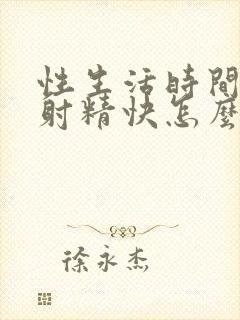 性生活時間
射精快怎麼
徐永杰